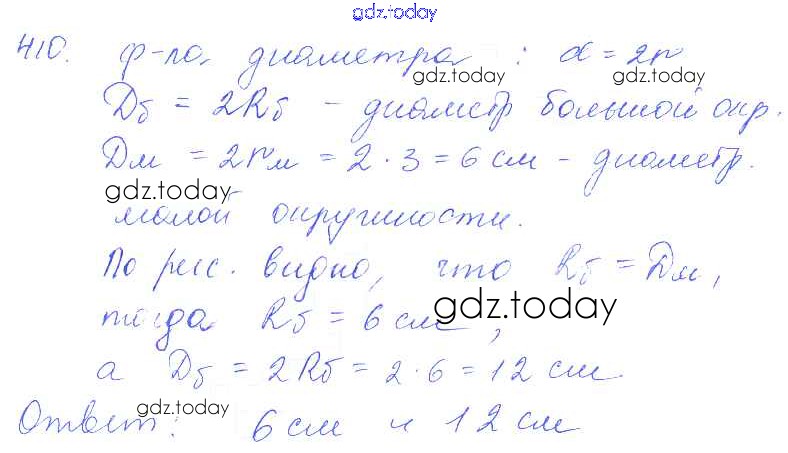 gdz.today
410. ф-ла диаметра : d = 2r
gdz.today gdz.today
Dб = 2Rб - диаметр большой окр.
Dм = 2rм = 2 · 3 = 6 см - диаметр.
gdz.today
малой окружности.
По рис. видно, что Rб = Dм,
тогда Rб = 6 см,
gdz.today
а Dб = 2Rб = 2 · 6 = 12 см
gdz.today
Ответ: 6 см и 12 см